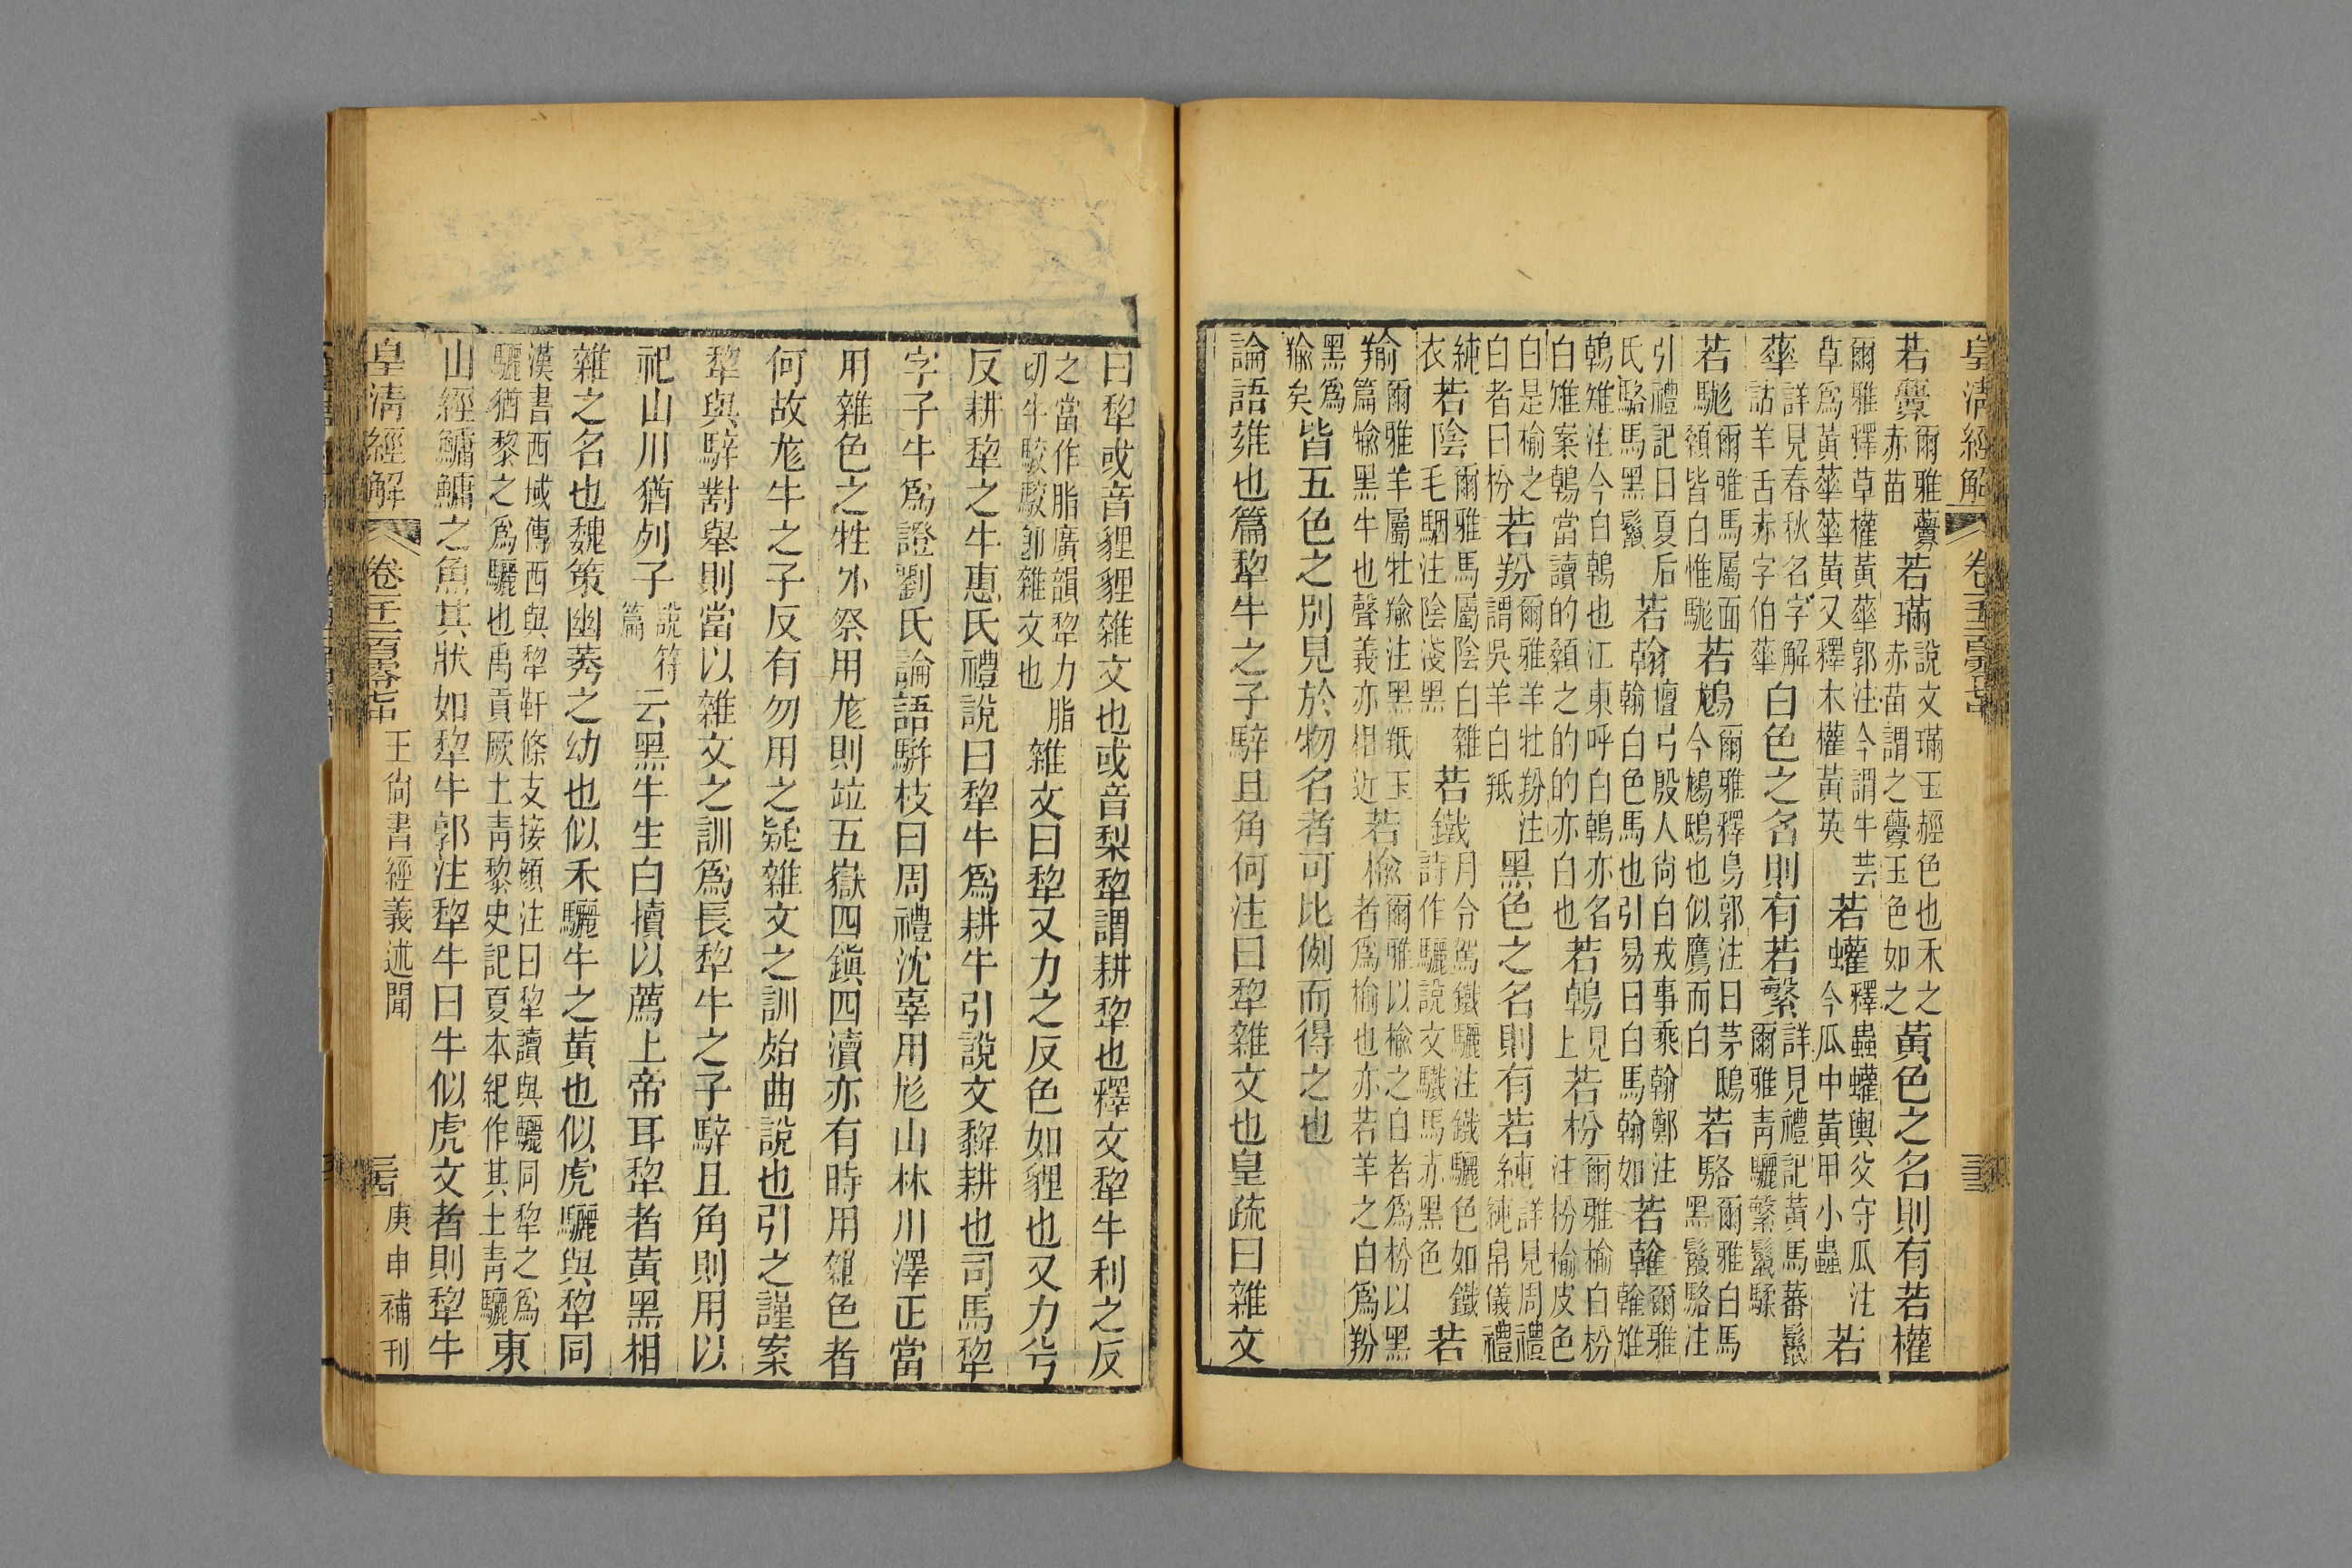 皇清經解 卷一千二百零七中
若虋爾雅虋若璊說文璊玉䞓色也禾之黃色之名則有若權
赤苗 赤苗謂之虋玉色如之
爾雅釋草權黃華郭注今謂牛芸若蠸釋蟲蠸輿父守瓜注若
草為黃華華黃又釋木權黃英 今瓜中黃甲小蟲
華詳見春秋名字解白色之名則有若蘩詳見禮記黃馬蕃鬛
詁羊舌赤字伯華 爾雅青驪繁鬛騥
若駹爾雅馬屬面若鴟爾雅釋鳥郭注曰茅鴟若駱爾雅白馬
顙皆白惟駹 今鵂鴟也似鷹而白 黑鬛駱注
引禮記曰夏后若翰檀弓殷人尚白戎事乘翰鄭注若雗爾雅
氏駱馬黑鬛 翰白色馬也引易曰白馬翰如 雗雉
鶾雉注今白鶾也江東呼白鶾亦名見若枌爾雅榆白枌
白雉案鶾當讀的顙之的的亦白也 上 注枌榆皮色
白是榆之若羒爾雅羊牡羒注黑色之名則有若純詳見周禮
白者曰枌 謂吳羊白羝 純帛儀禮
純若陰爾雅馬屬陰白雜若鐵月令駕鐵驪注鐵驪色如鐵若
衣 毛駰注陰淺黑 詩作驖說文驖馬赤黑色
羭爾雅羊屬牡羭注黑羝玉若榆爾雅以榆之白者為枌以黑
篇㹙黑牛也聲義亦相近 者為榆也亦若羊之白為羒
黑為皆五色之別見於物名者可比例而得之也
羭矣
論語雍也篇犂牛之子騂且角何注曰犂雜文也皇疏曰雜文
曰犂或音貍貍雜文也或音梨犂謂耕犂也釋文犂牛利之反
之當作脂廣韻犂力脂雜文曰犂又力之反色如貍也又力兮
切牛駁駁即雜文也
反耕犂之牛惠氏禮說曰犂牛為耕牛引說文䊍耕也司馬犂
字子牛為證劉氏論語駢枝曰周禮沈辜用尨山林川澤正當
用雜色之牲外祭用尨則竝五嶽四鎮四瀆亦有時用雜色者
何故尨牛之子反有勿用之疑雜文之訓殆曲說也引之謹案
犂與騂對舉則當以雜文之訓為長犂牛之子騂且角則用以
祀山川猶列子說符云黑牛生白犢以薦上帝耳犂者黃黑相
篇
雜之名也魏策幽莠之幼也似禾驪牛之黃也似虎驪與犂同
漢書西域傳西與犂軒條支接顏注曰犂讀與驪同犂之為東
驪猶黎之為驪也禹貢厥土青黎史記夏本紀作其土青驪
山經鱅鱅之魚其狀如犂牛郭注犂牛曰牛似虎文者則犂牛
皇清經解 卷一千二百零七中 王尚書經義述聞 庚申補刊